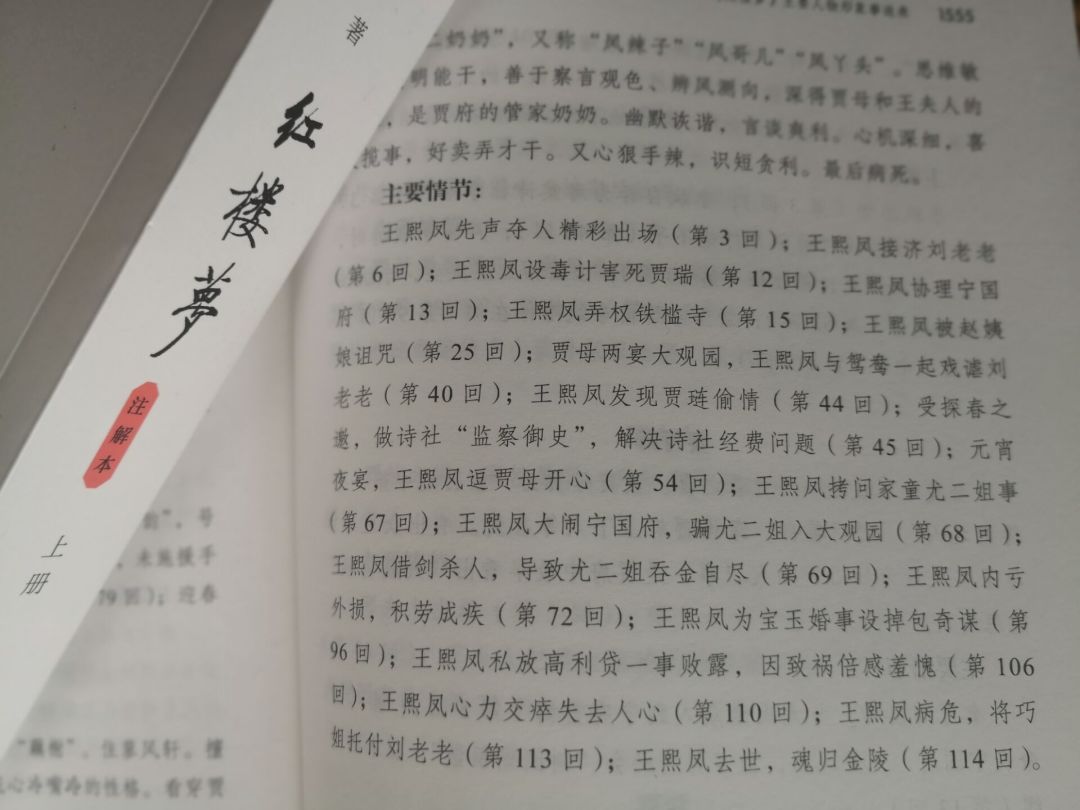 著
红楼夢
注解本
上册
1555
二奶奶”，又称“凤辣子”“凤哥儿”“凤丫头”。思维敏
明能干，善于察言观色、辨风测向，深得贾母和王夫人的
，是贾府的管家奶奶。幽默诙谐，言谈爽利。心机深细，喜
揽事，好卖弄才干。又心狠手辣，识短贪利。最后病死。
主要情节：
王熙凤先声夺人精彩出场（第 3 回）；王熙凤接济刘老老
（第 6 回）；王熙凤设毒计害死贾瑞（第 12 回）；王熙凤协理宁国
府（第 13 回）；王熙凤弄权铁槛寺（第 15 回）；王熙凤被赵姨
娘诅咒（第 25 回）；贾母两宴大观园，王熙凤与鸳鸯一起戏谑刘
老老（第 40 回）；王熙凤发现贾琏偷情（第 44 回）；受探春之
邀，做诗社“监察御史”，解决诗社经费问题（第 45 回）；元宵
夜宴，王熙凤逗贾母开心（第 54 回）；王熙凤拷问家童尤二姐事
（第 67 回）；王熙凤大闹宁国府，骗尤二姐入大观园（第 68 回）；
王熙凤借剑杀人，导致尤二姐吞金自尽（第 69 回）；王熙凤内亏
外损，积劳成疾（第 72 回）；王熙凤为宝玉婚事设掉包奇谋（第
96 回）；王熙凤私放高利贷一事败露，因致祸倍感羞愧（第 106
回）；王熙凤心力交瘁失去人心（第 110 回）；王熙凤病危，将巧
姐托付刘老老（第 113 回）；王熙凤去世，魂归金陵（第 114 回）。
”，号
，未施援手
79 回）；迎春
“藕榭”。住蓼风轩。擅
心冷嘴冷的性格。看穿贾